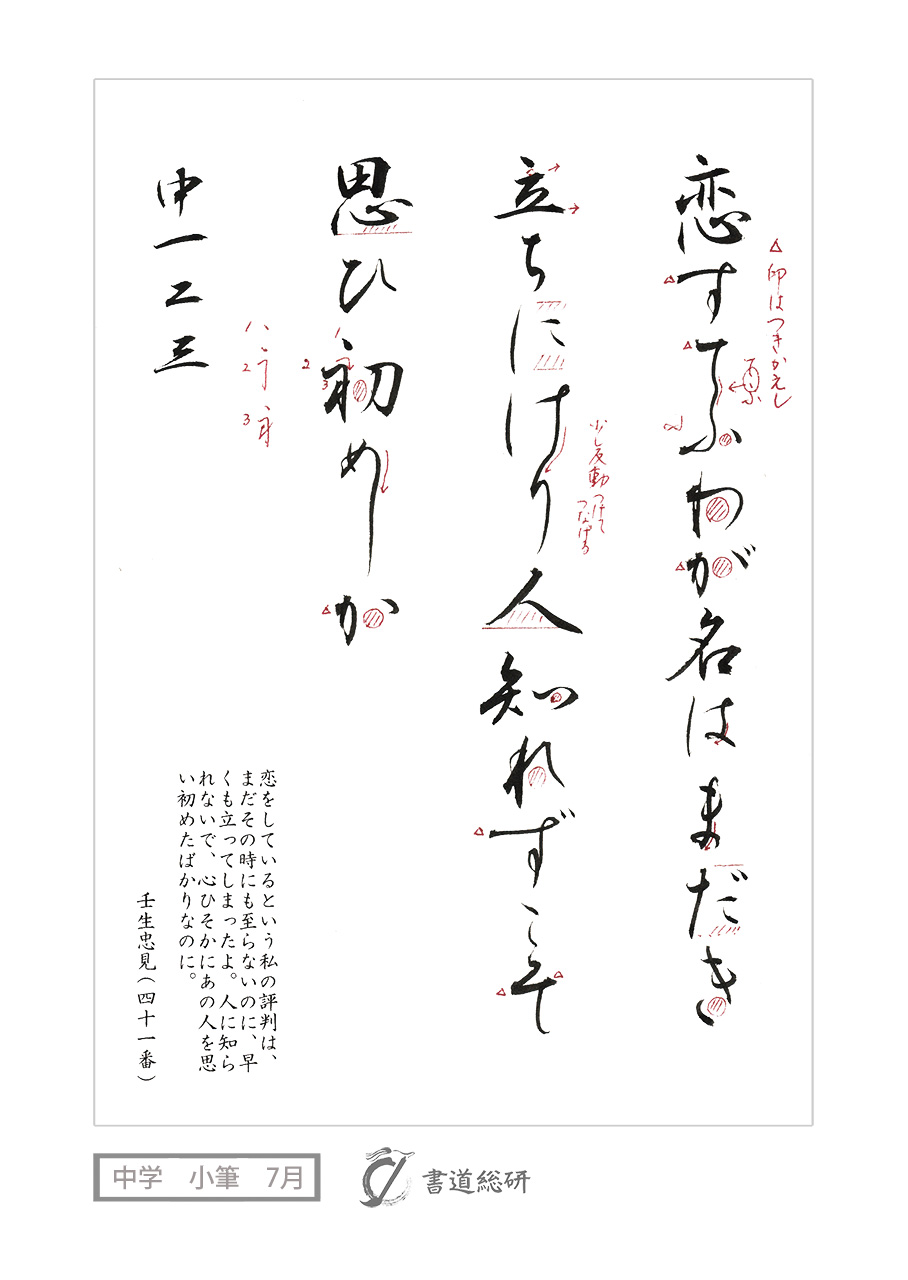 恋すてふわが名はまだき
立ちにけり人知れずこそ
思ひ初めしか
中一二三
△印はつきかえし
少し反動つけて
つなげる
2
3
2
3
恋をしているという私の評判は、
まだその時にも至らないのに、早
くも立ってしまったよ。人に知ら
れないで、心ひそかにあの人を思
い初めたばかりなのに。
壬生忠見(四十一番)
中学 小筆 7月
書道総研